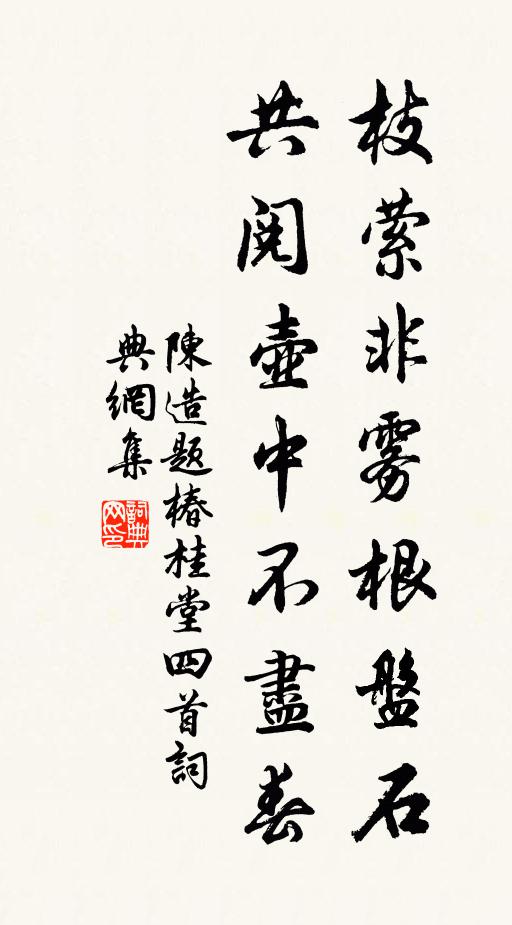 枝萦非雾根盤石
共閱壺中不盡春
陳造題椿桂堂四首詞
典網集
詞典网印